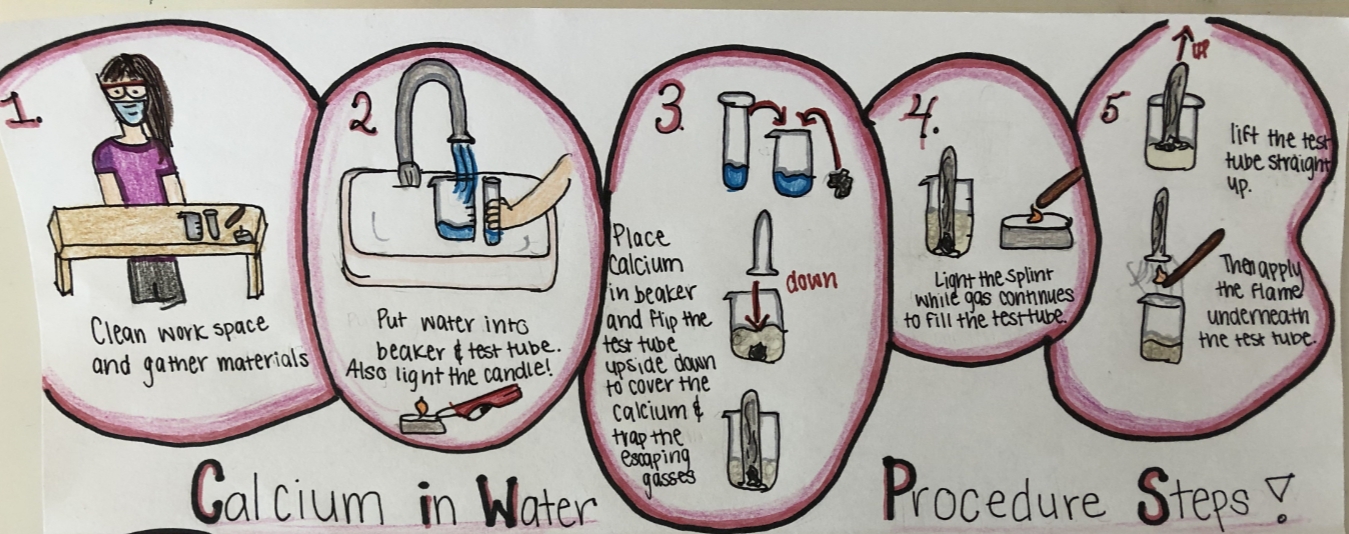 1.
Clean work space
and gather materials
2
Put water into
beaker & test tube.
Also light the candle!
3.
Place
Calcium
in beaker
and flip the
test tube
upside down
to cover the
calcium &
trap the
escaping
gasses
down
4.
Light the splint
while gas continues
to fill the test tube.
5
up
lift the test
tube straight
up.
Then apply
the flame
underneath
the test tube.
Calcium in Water
Procedure Steps!